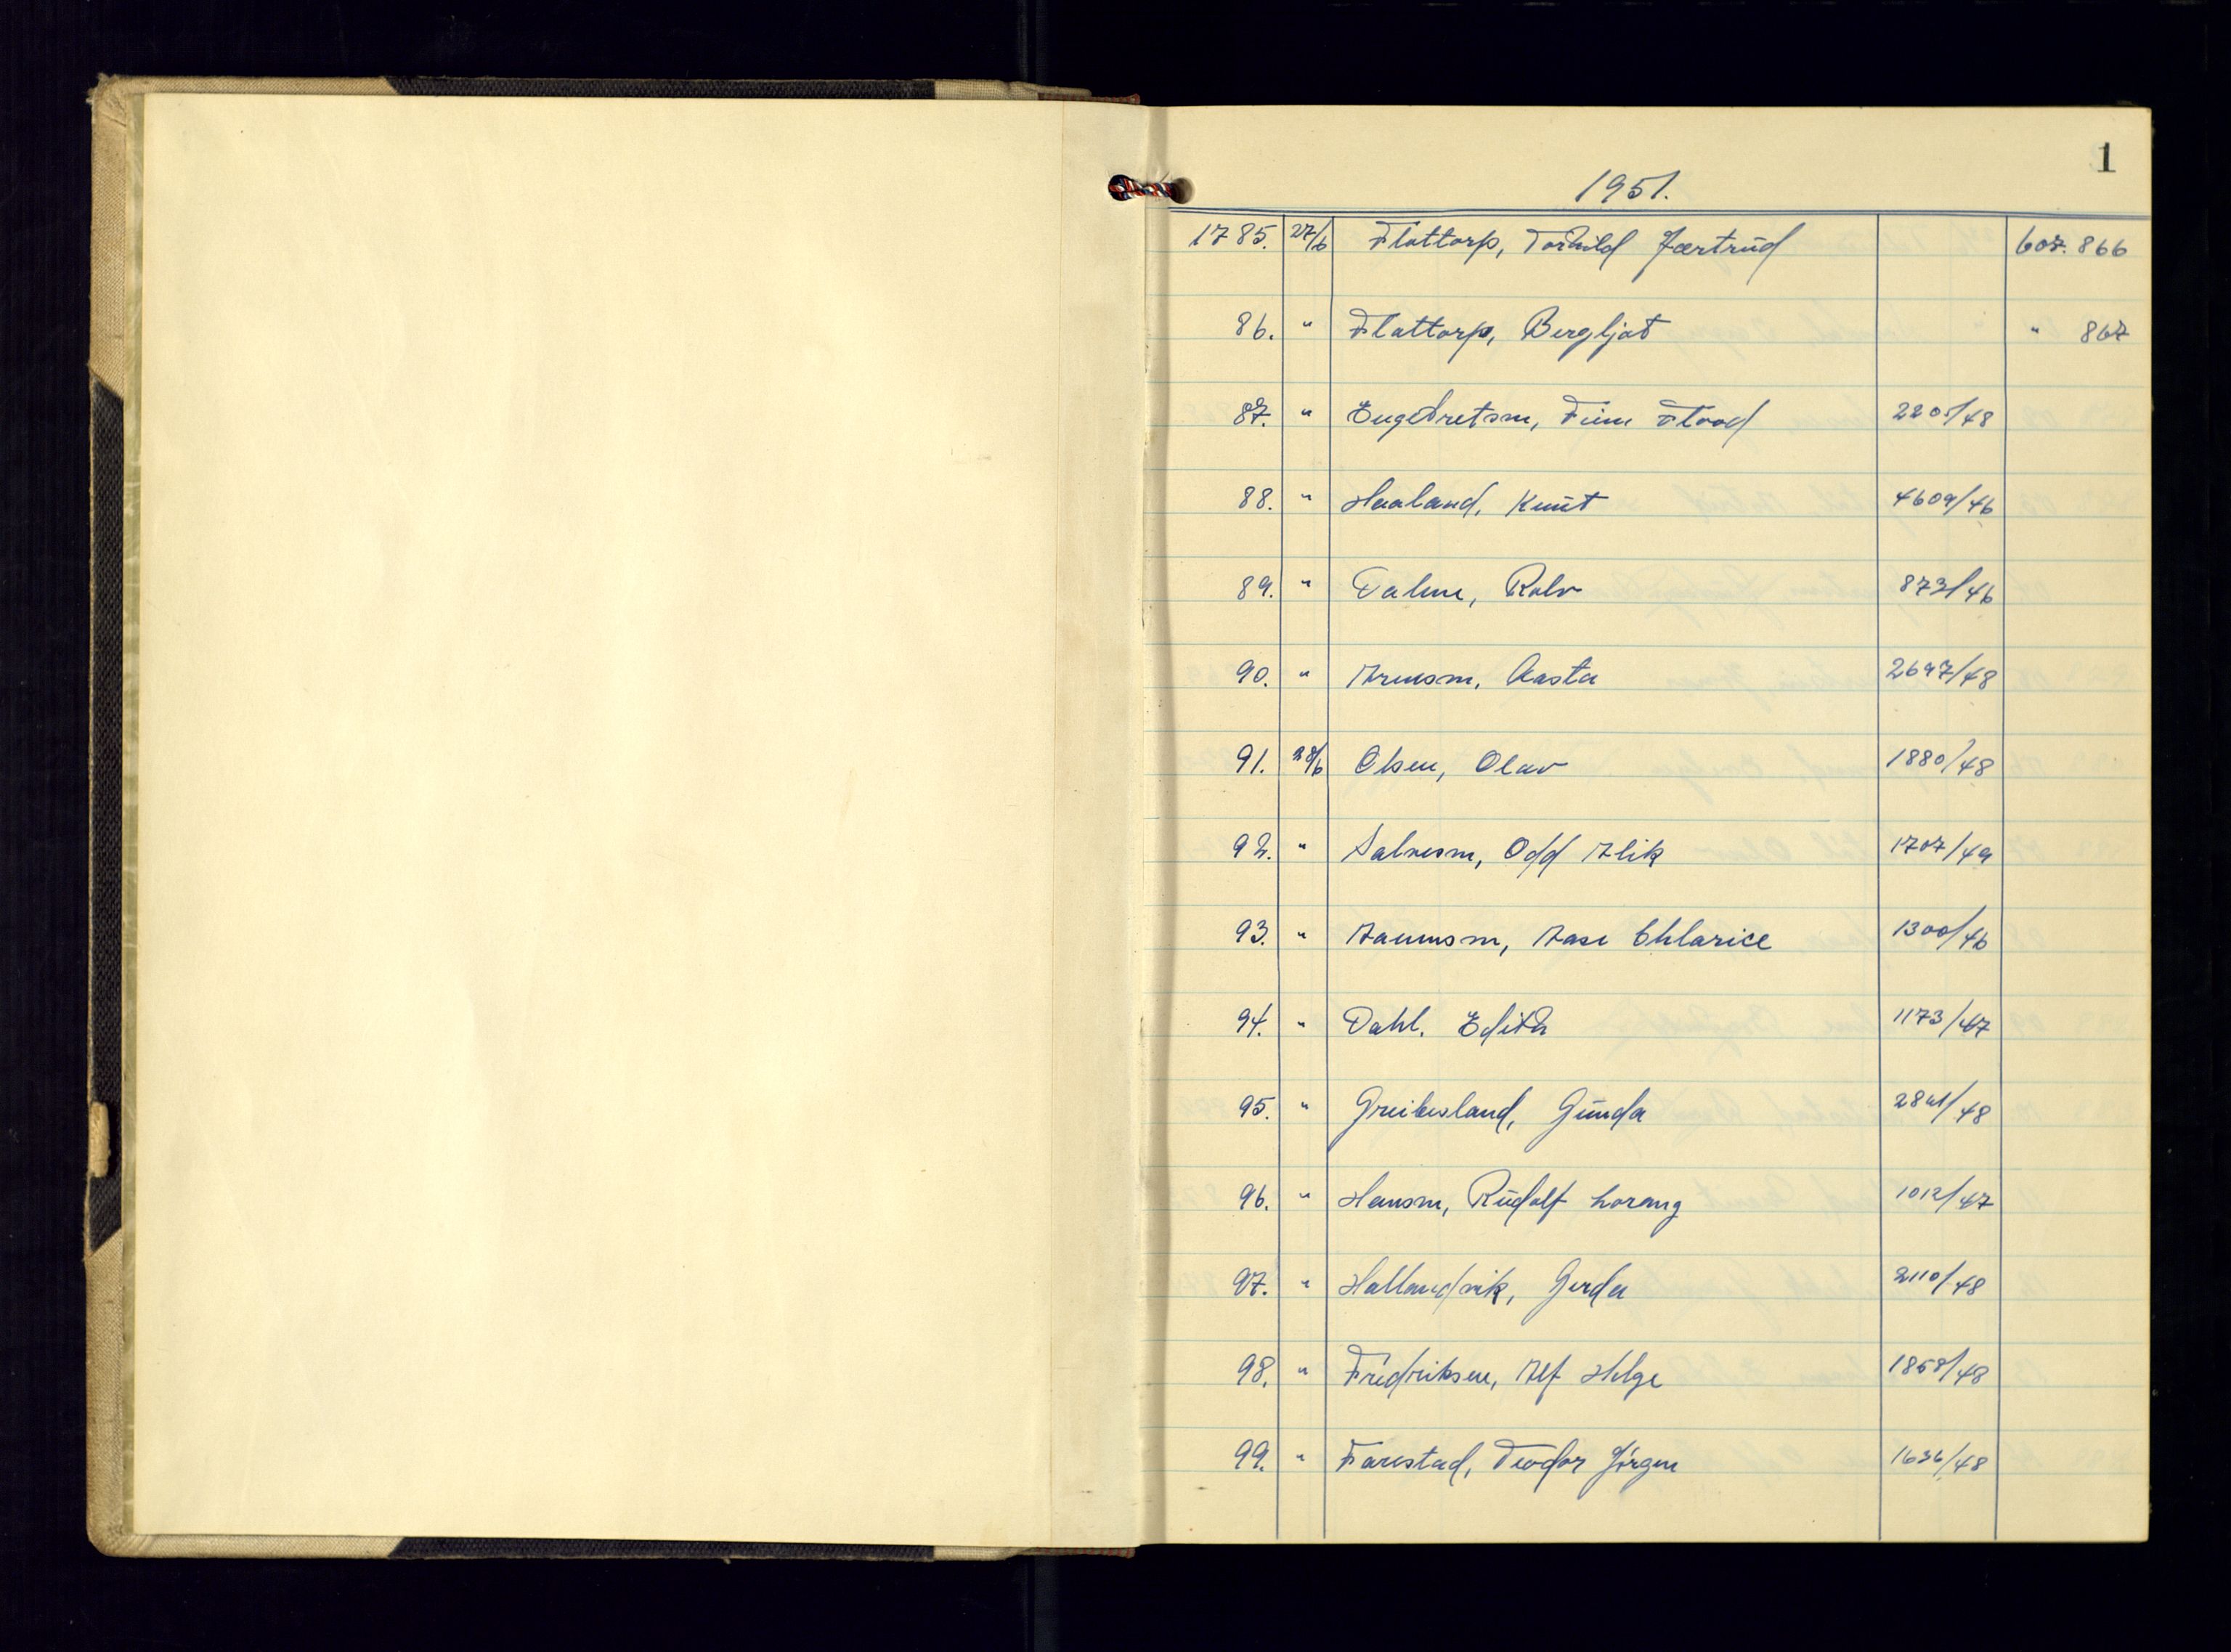 1
1951.
1785. 27/6 Flottorp, Torhild Jærtrud 607.866
86. " Flottorp, Bergljot " 867
87. " Engebretsen, Finn Flood 2205/48
88. " Haaland, Knut 4609/46
89. " Dalene, Rolv 873/46
90. " Arnesen, Aasta 2697/48
91. 28/6 Olsen, Olav 1880/48
92. " Salvesen, Odd Alik 1707/49
93. " Aanensen, Aase Chlarice 1300/46
94. " Dahl. Edith 1173/47
95. " Greibesland, Gunda /48
96. " Hansen, Rudolf Loreng 1012/47
97. " Hallandvik, Gerda 2110/48
98. " Fredriksen, Alf Helge 1858/48
99. " Farestad, Teodor Jörgen 1636/48